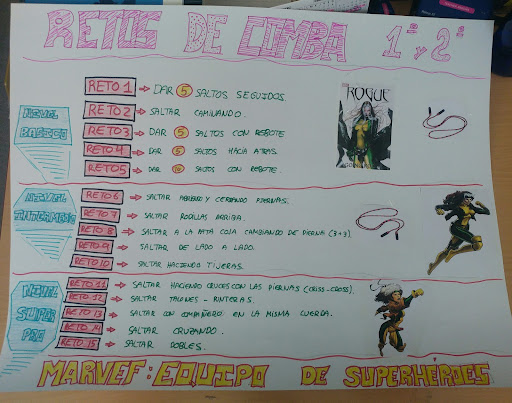 RETOS DE COMBA 1º y 2º
NIVEL BÁSICO
RETO 1 → DAR 5 SALTOS SEGUIDOS.
RETO 2 → SALTAR CAMINANDO.
RETO 3 → DAR 5 SALTOS CON REBOTE
RETO 4 → DAR 5 SALTOS HACIA ATRAS.
RETO 5 → DAR 10 SALTOS CON REBOTE.
ROGUE
NIVEL INTERMEDIO
RETO 6 → SALTAR ABRIENDO Y CERRANDO PIERNAS.
RETO 7 → SALTAR RODILLAS ARRIBA.
RETO 8 → SALTAR A LA PATA COJA CAMBIANDO DE PIERNA (3+3).
RETO 9 → SALTAR DE LADO A LADO.
RETO 10 → SALTAR HACIENDO TIJERAS.
NIVEL SUPER PRO
RETO 11 → SALTAR HACIENDO CRUCES CON LAS PIERNAS (CRISS-CROSS).
RETO 12 → SALTAR TALONES - PUNTERAS.
RETO 13 → SALTAR CON COMPAÑERO EN LA MISMA CUERDA.
RETO 14 → SALTAR CRUZANDO.
RETO 15 → SALTAR DOBLES.
MARVEF: EQUIPO DE SUPERHÉROES